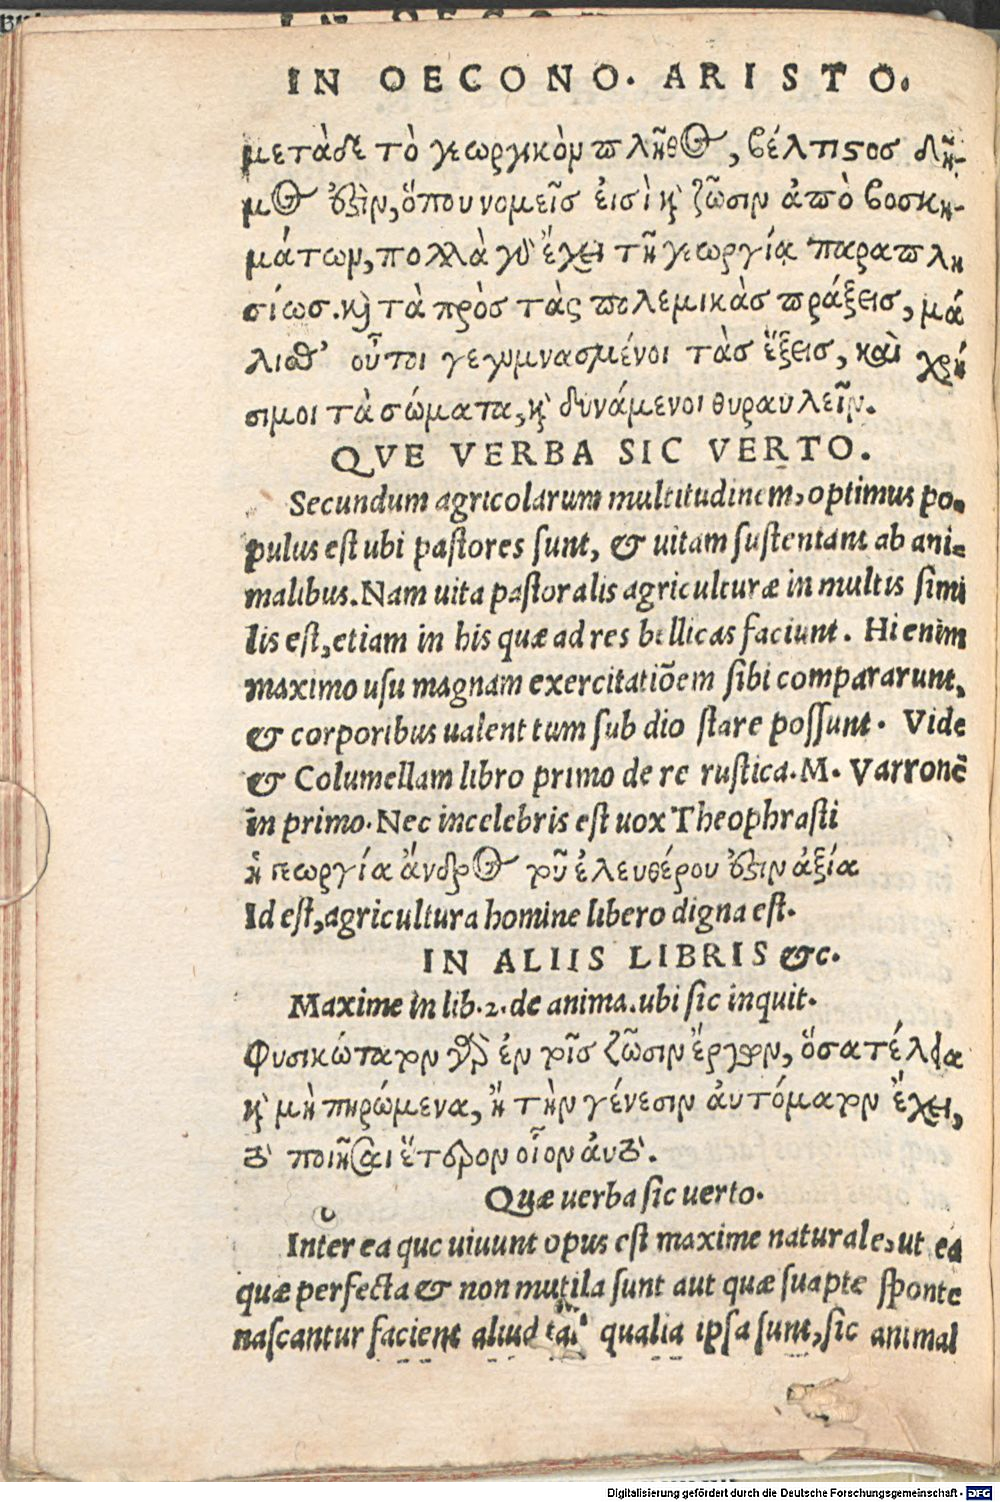 IN OECONO. ARISTO.
μετὰ δὲ τὸ γεωργικὸν πλῆθος, βέλτιστος δῆ-
μος ἐστὶν, ὅπου νομεῖς εἰσὶ καὶ ζῶσιν ἀπὸ βοσκη-
μάτων, πολλὰ γὰρ ἔχει τῇ γεωργίᾳ παραπλη
σίως. καὶ τὰ πρὸς τὰς πολεμικὰς πράξεις, μά
λισθ' οὗτοι γεγυμνασμένοι τὰς ἕξεις, καὶ χρή
σιμοι τὰ σώματα, καὶ δυνάμενοι θυραυλεῖν.
QVE VERBA SIC VERTO.
Secundum agricolarum multitudinem, optimus po-
pulus est ubi pastores sunt, & uitam sustentant ab ani-
malibus. Nam uita pastoralis agriculturæ in multis simi
lis est, etiam in his quæ ad res bellicas faciunt. Hi enim
maximo usu magnam exercitatiõem sibi compararunt,
& corporibus ualent tum sub dio stare possunt. Vide
& Columellam libro primo de re rustica. M. Varronẽ
in primo. Nec incelebris est uox Theophrasti
ἡ γεωργία ἄνδρος τοῦ ἐλευθέρου ἐστὶν ἀξία
Id est, agricultura homine libero digna est.
IN ALIIS LIBRIS &c.
Maxime in lib. 2. de anima. ubi sic inquit.
Φυσικώτατον γὰρ ἐν τοῖς ζῶσιν ἔργον, ὅσα τέλεια
καὶ μὴ πηρώμενα, ἢ τὴν γένεσιν αὐτόματον ἔχει,
τὸ ποιῆσαι ἕτερον οἷον ἀυτὸ.
Quæ uerba sic uerto.
Inter ea que uiuunt opus est maxime naturale, ut ea
quæ perfecta & non mutila sunt aut quæ suapte sponte
nascantur facient aliud tale qualia ipsa sunt, sic animal
Digitalisierung gefördert durch die Deutsche Forschungsgemeinschaft - DFG